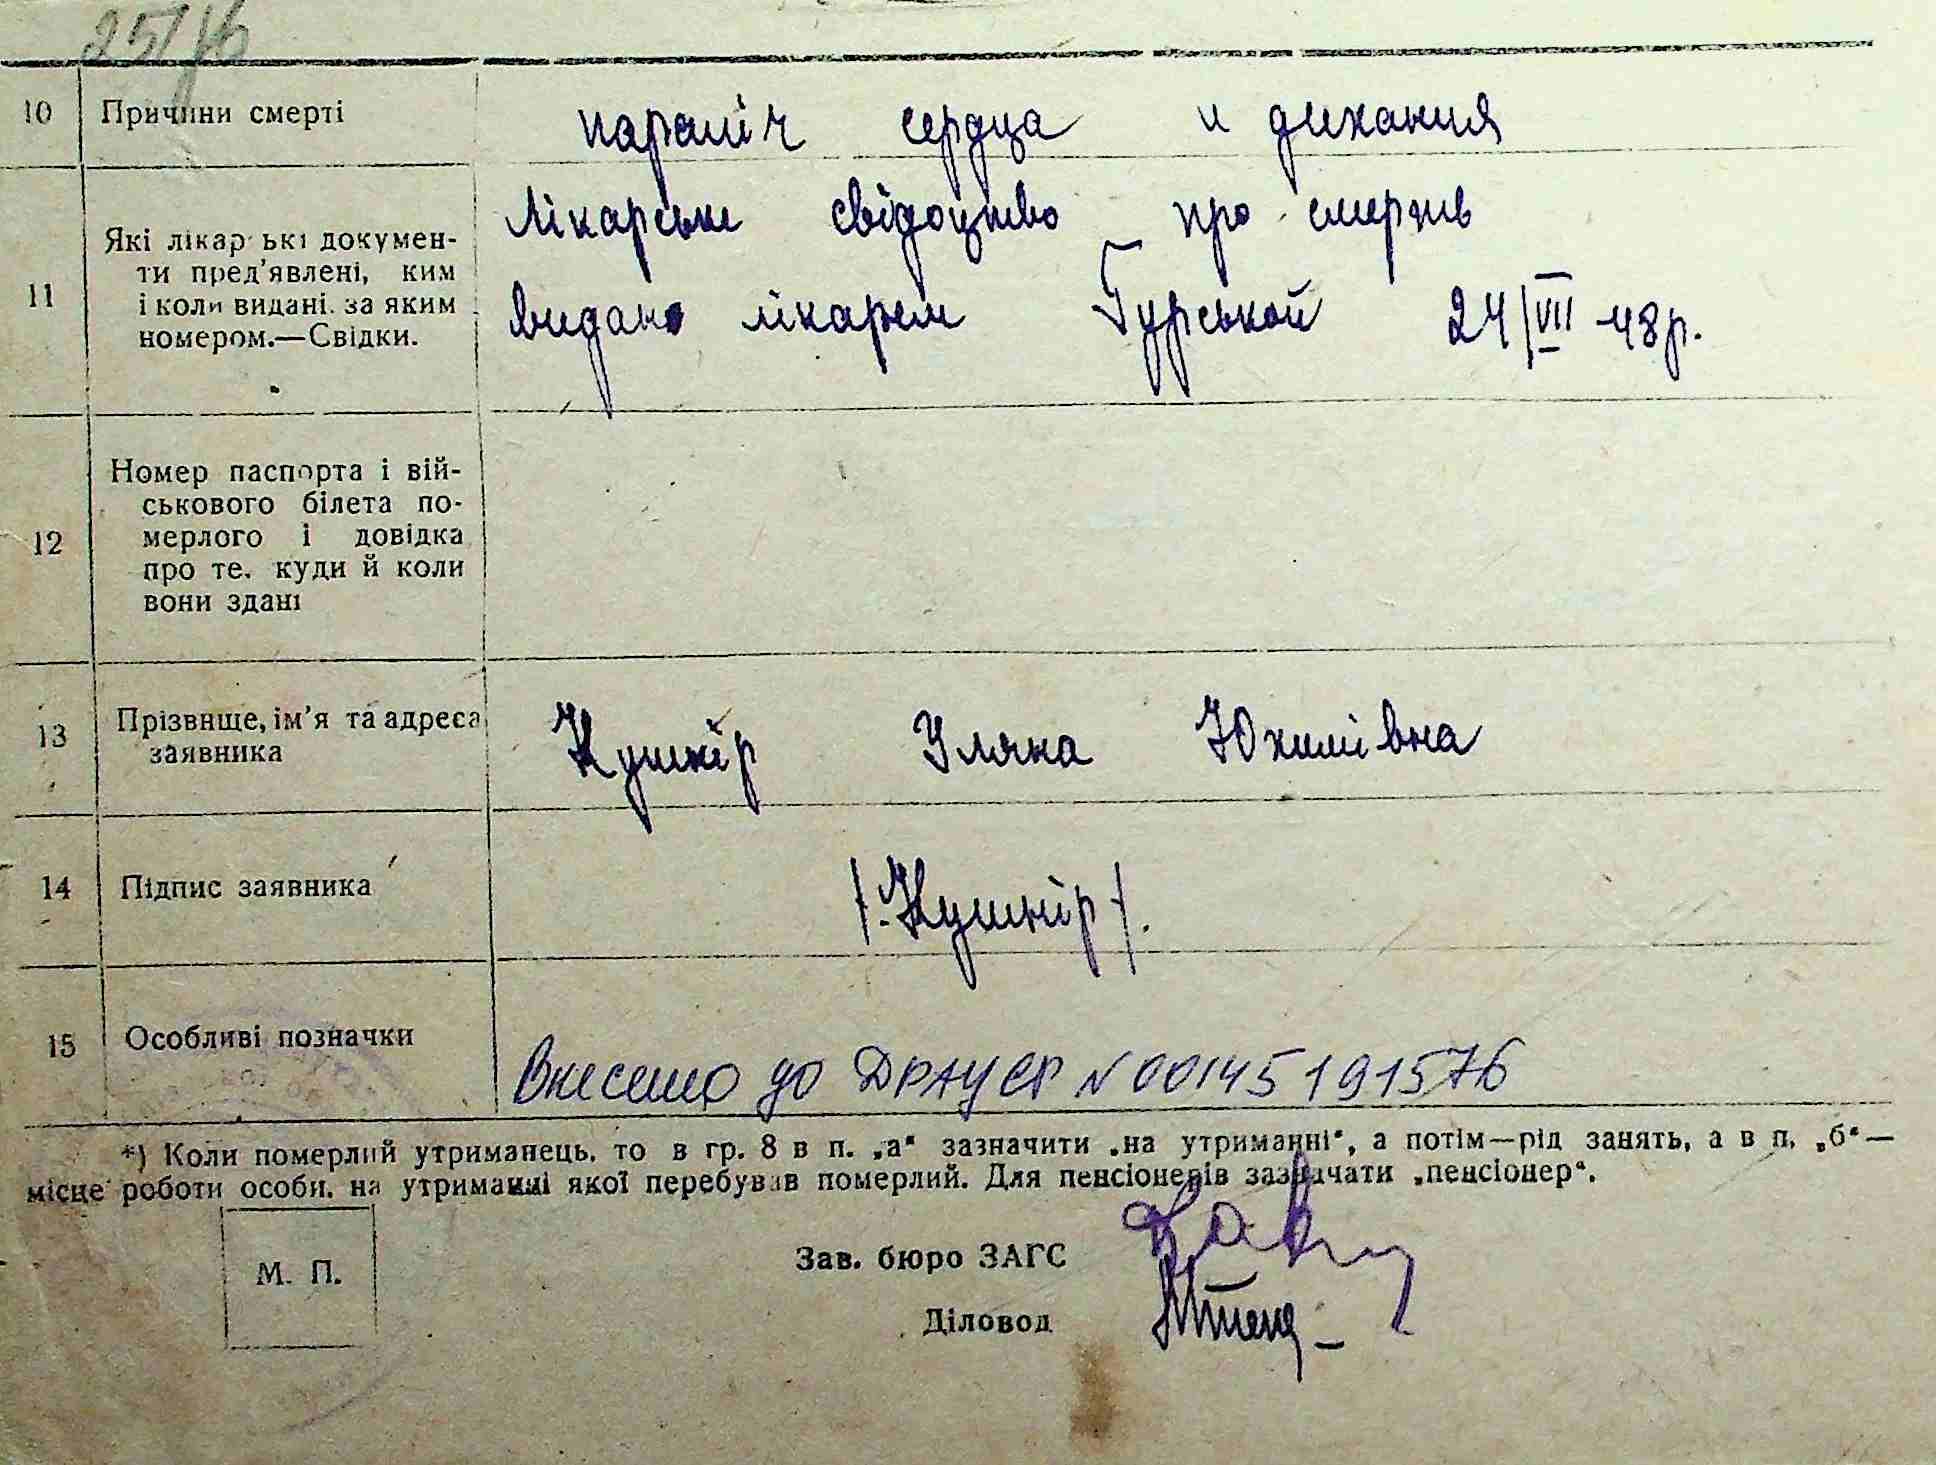 25/16
10 Причини смерті параліч сердца и дихания
11 Які лікарські докумен-
ти пред'явлені, ким
і коли видані. за яким
номером.—Свідки.
Лікарське свідоцтво про смерть
видано лікарем Гурськой 24/VII-48р.
12 Номер паспорта і вій-
ськового білета по-
мерлого і довідка
про те. куди й коли
вони здані
13 Прізвище, ім'я та адреса
заявника
Кушнір Уляна Юхимівна
14 Підпис заявника /.Кушнір/.
15 Особливі позначки
Внесено до ДРАЦСГ N 00145191576
*) Коли померлий утриманець. то в гр. 8 в п. „а" зазначити „на утриманні", а потім—рід занять, а в п. „б"—
місце роботи особи. на утриманні якої перебував померлий. Для пенсіонерів зазначати „пенсіонер".
М. П.
Зав. бюро ЗАГС
Діловод